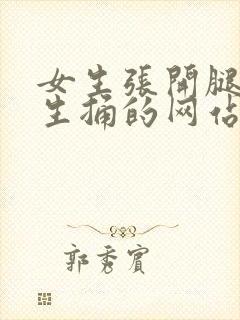 女生張開腿
生捅的网佔
郭秀賓